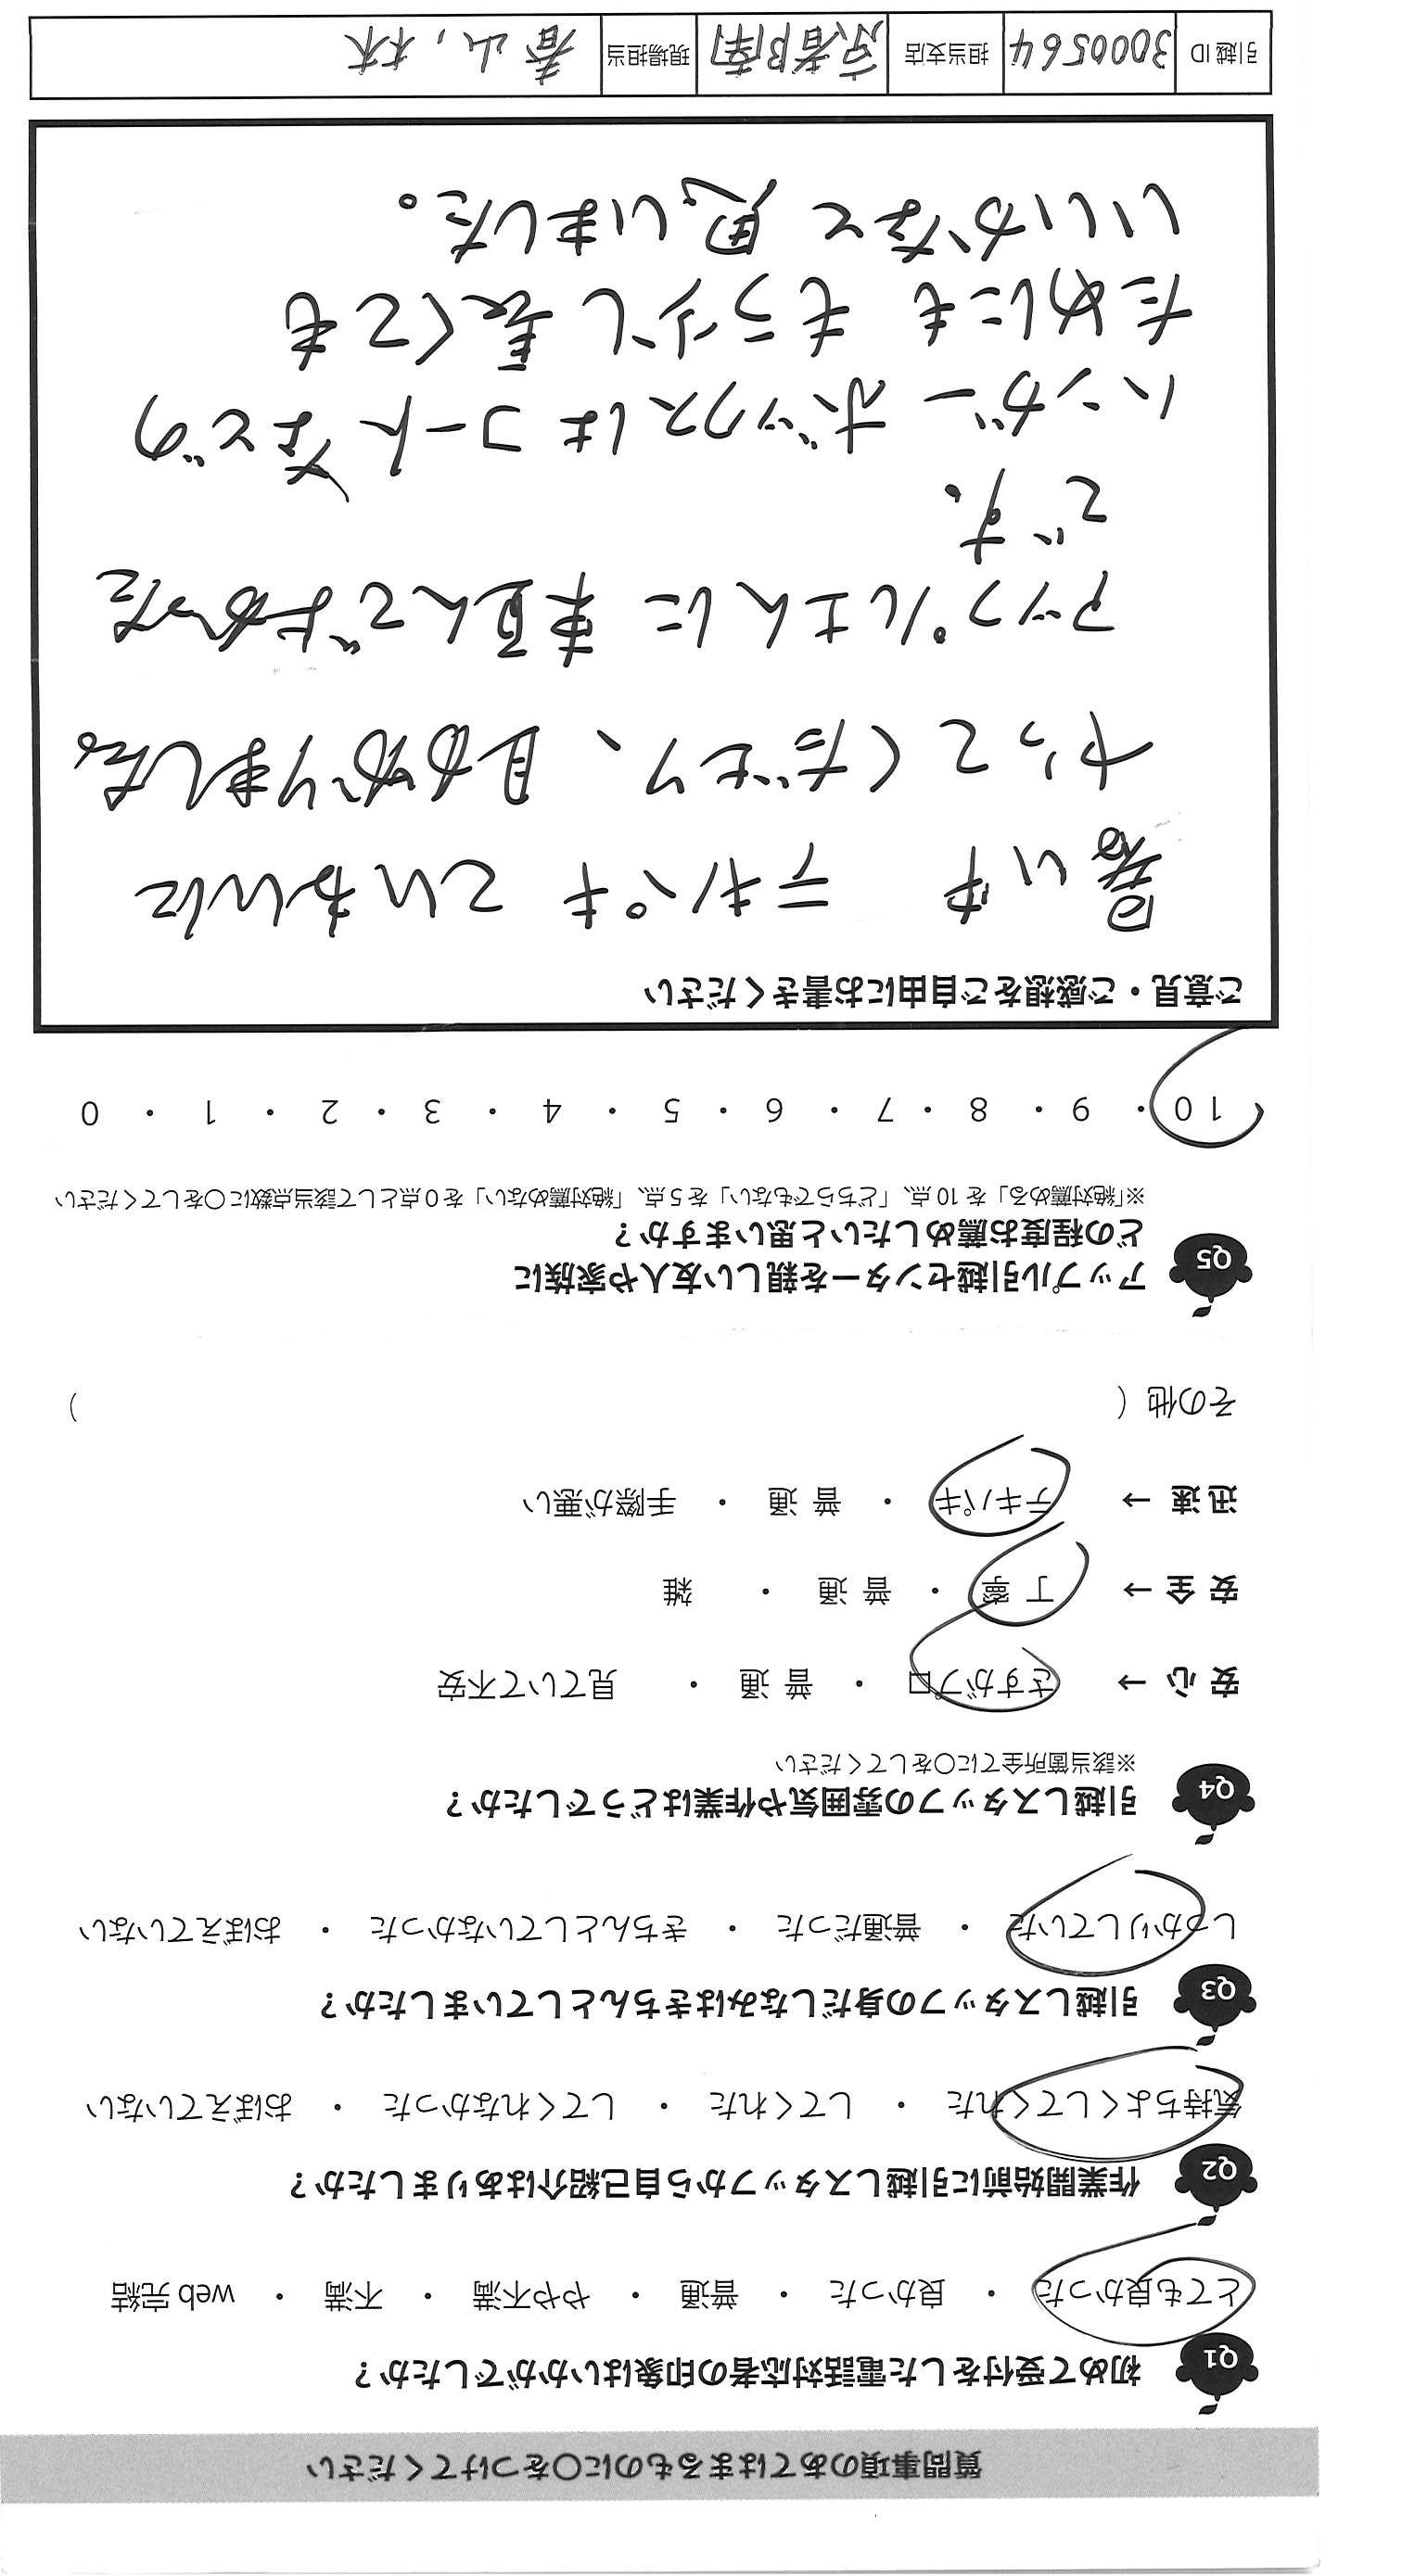 質問事項のあてはまるものに○をつけてください
Q1 初めて受付をした電話対応者の印象はいかがでしたか？
とても良かった ・ 良かった ・ 普通 ・ やや不満 ・ 不満 ・ web 完結
Q2 作業開始前に引越しスタッフから自己紹介はありましたか？
気持ちよくしてくれた ・ してくれた ・ してくれなかった ・ おぼえていない
Q3 引越しスタッフの身だしなみはきちんとしていましたか？
しっかりしていた ・ 普通だった ・ きちんとしていなかった ・ おぼえていない
Q4 引越しスタッフの雰囲気や作業はどうでしたか？
※該当箇所全てに○をしてください
安心 → さすがプロ ・ 普通 ・ 見ていて不安
安全 → 丁寧 ・ 普通 ・ 雑
迅速 → テキパキ ・ 普通 ・ 手際が悪い
その他（ ）
Q5 アップル引越センターを親しい友人や家族に
どの程度お薦めしたいと思いますか？
※「絶対薦める」を 10 点、「どちらでもない」を 5 点、「絶対薦めない」を 0 点として該当点数に○をしてください
10 ・ 9 ・ 8 ・ 7 ・ 6 ・ 5 ・ 4 ・ 3 ・ 2 ・ 1 ・ 0
ご意見・ご感想をご自由にお書きください
暑い中 テキパキ ていねいに
やって下さり、助かりました。
アップルさんに 頼んでよかった
です。
ハンガーボックスはコートなどの
ためにも もう少し長くても
いいかなと思いました。
引越 ID 3000564 担当支店 京都南 現場担当 春山, 林